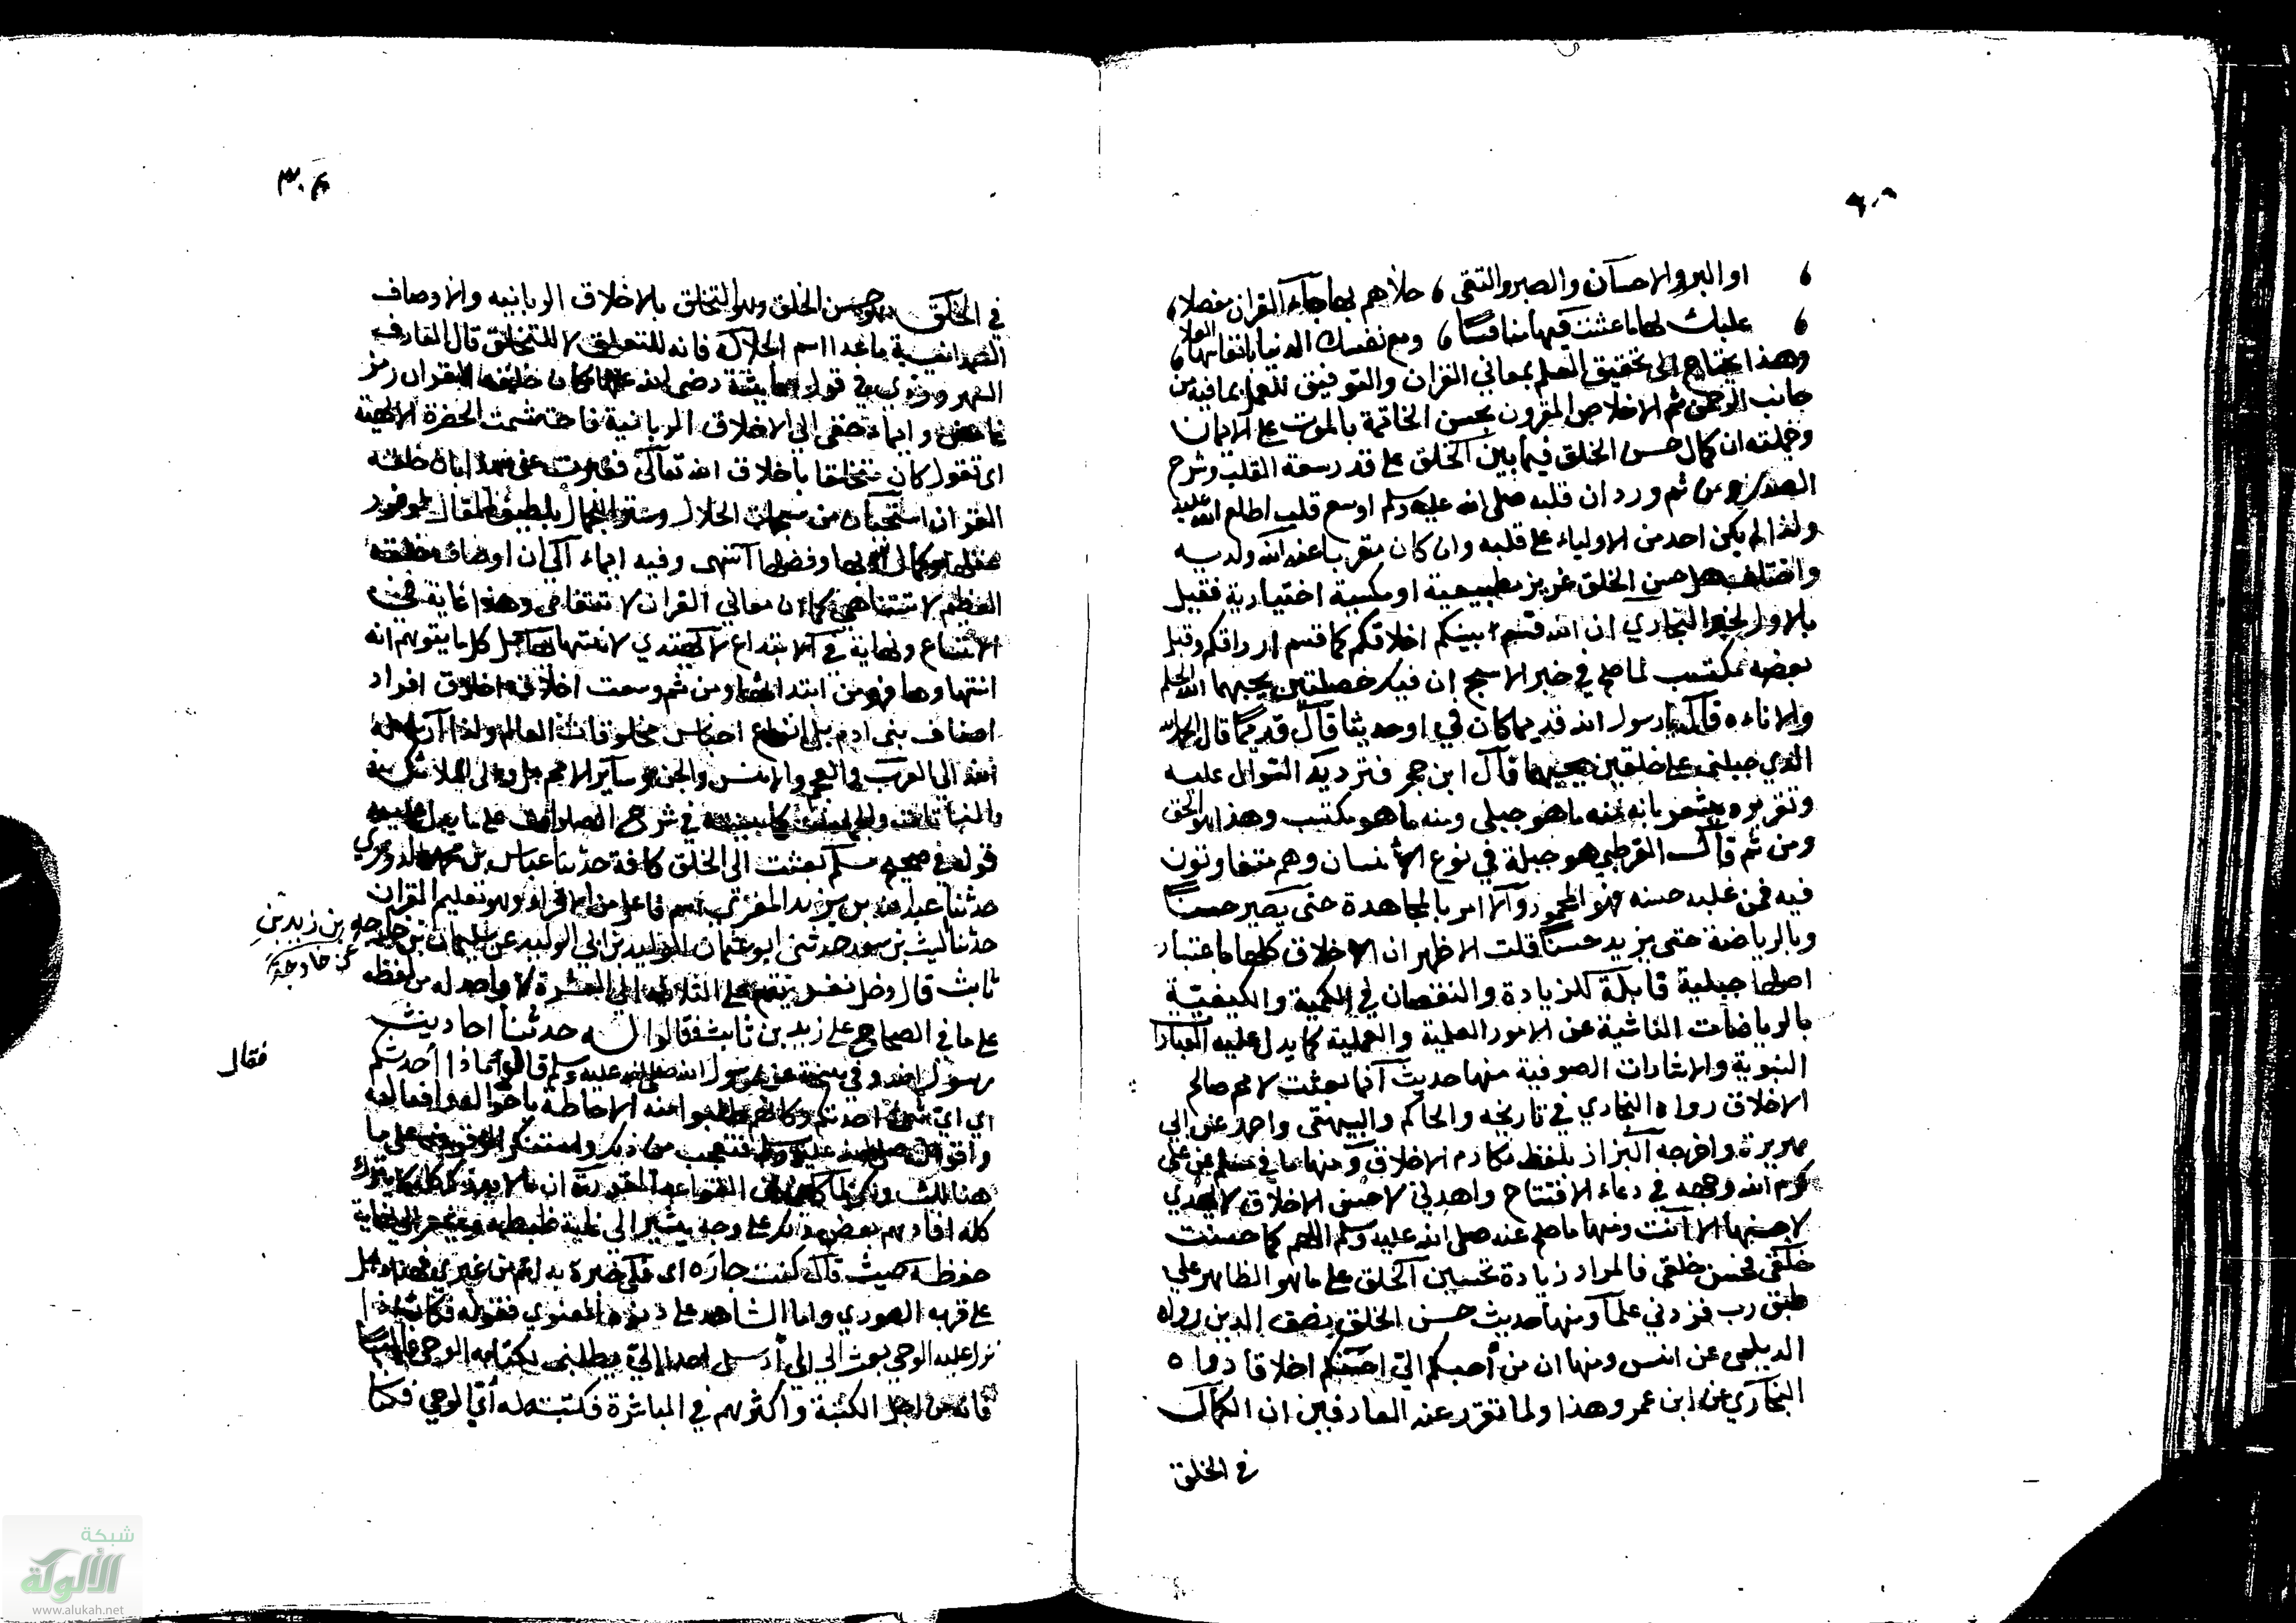 اولوا البر والاحسان والصبر والتقى ، حلاهم بها جاء القران مفصلا ،
عليك بها ما عشت فيها منافسا ، وبع نفسك الدنيا بانفاسها العلا ،
وهذا يحتاج الى تحقيق العلم بمعاني القران والتوفيق للعمل بما فيه من
جانب الرحمن ثم الاخلاص المقرون بحسن الخاتمة بالموت على الايمان
وجملته ان كمال حسن الخلق فيما بين الخلق على قدر سعة القلب وشرح
الصدر ومن ثم ورد ان قلبه صلى الله عليه وسلم اوسع قلب اطلع الله عليه
ولذا لم يكن احد من الاولياء على قلبه وان كان متقربا عند الله ولديه
واختلف هل حسن الخلق غريزة طبيعية او مكسبة اختيارية فقيل
بالاول لخبر البخاري ان الله قسم بينكم اخلاقكم كما قسم ارزاقكم وقيل
بعضه مكتسب لما صح في خبر الاشج ان فيك خصلتين يحبهما الله الحلم
والاناءه قال يا رسول الله قديما كان في او حديثا قال قديما قال الحمد لله
الذي جبلني على خلقين يحبهما قال ابن حجر فترديد السؤال عليه
وتقريره يشعر بانه منه ما هو جبلي ومنه ما هو مكتسب وهذا هو الحق
ومن ثم قال القرطبي هو جبلة في نوع الانسان وهم متفاوتون
فيه فمن غلبه حسنه فهو المحمود والا امر بالمجاهدة حتى يصير حسنا
وبالرياضة حتى يزيد حسنا قلت الاظهر ان الاخلاق كلها باعتبار
اصلها جبلية قابلة للزيادة والنقصان في الكمية والكيفية
بالرياضات الناشية عن الامور العلمية والعملية كما يدل عليه العبارات
النبوية والاشارات الصوفية منها حديث انما بعثت لاتمم صالح
الاخلاق رواه البخاري في تاريخه والحاكم والبيهقي واحمد عن ابي
هريرة واخرجه البزاز بلفظ مكارم الاخلاق ومنها ما في مسلم عن علي
كرم الله وجهه في دعاء الافتتاح واهدني لاحسن الاخلاق لا يهدي
لاحسنها الا انت ومنها ما صح عنه صلى الله عليه وسلم اللهم كما حسنت
خلقي فحسن خلقي فالمراد زيادة تحسين الخلق على ما هو الظاهر على
طبق رب زدني علما ومنها حديث حسن الخلق نصف الدين رواه
الديلمي عن انس ومنها ان من أحبكم الي احسنكم اخلاقا رواه
البخاري عن ابن عمرو هذا ولما تقرر عند العارفين ان الكمال
في الخلق
في الخلق هو حسن الخلق وهو التخلق بالاخلاق الربانيه والاوصاف
الصمدانية ما عدا اسم الجلاله فانه للتعلق لا للتخلق قال العارف
السهروردي في قول عايشة رضي الله عنها كان خلقه القران رمز
غامض وايماء خفي الى الاخلاق الربانية فاحتشمت الحضرة الالهية
ان تقول كان متخلقا باخلاق الله تعالى فعبرت عن هذا بان خلقه
القران استحياء من سبحات الجلال وسترا للحال بلطيف المقال لوفور
عقلها وكمال ادبها وفضلها انتهى وفيه ايماء الى ان اوصاف خلقه
العظيم لا تتناهي كما ان معاني القران لا تتقاصى وهذا غاية في
الاتساع ونهاية في الابتداع لا يهتدي لانتهائها بل كل ما يتوهم انه
انتهاوها فهو من ابتدائها ومن ثم وسعت اخلاقه اخلاق افراد
اصناف بني ادم بل انواع اجناس مخلوقات العالم ولذا ارسله
الله الى العرب والعجم والانس والجن وسائر الامم بل والى الملائكة
والنباتات والجمادات كما بينته في شرح الصلوات على ما يدل عليه
قوله في صحيح مسلم بعثت الى الخلق كافة حدثنا عباس بن محمد الدوري
حدثنا عبد الله بن يزيد المقرئ اسم فاعل من الاقراء وهو تعليم القران
حدثنا ليث بن سعد حدثني ابو عثمان الوليد بن ابي الوليد عن سليمان بن خارجه بن زيد بن
عن خارجة
ثابت قال دخل نفر يقع على الثلاثة الى العشرة لا واحد له من لفظه
على ما في الصحاح على زيد بن ثابت فقالوا له حدثنا احاديث
رسول الله وفي نسخة عن رسول الله صلى الله عليه وسلم قال ماذا أحدثكم
فقال
اي اي شيء احدثكم وكانهم طلبوا منه الاحاطة باحواله وافعاله
واقواله صلى الله عليه وسلم فتعجب من ذلك
كله افادهم بعض ذلك على وجه يشير الى غاية ضبطه ونهاية
حفظه حيث قال كنت جاره اى فلي خبرة به اتم من غيري فهذا يدل
على قربه الصوري واما الشاهد على دنوه المعنوي فقوله فكان اذا
نزل عليه الوحي بعث الي اي أرسل احدا الي يطلبني لكتابه الوحي غالبا
فانه من اجل الكتبة واكثرهم في المباشرة فكتبت له أي الوحي فكنا